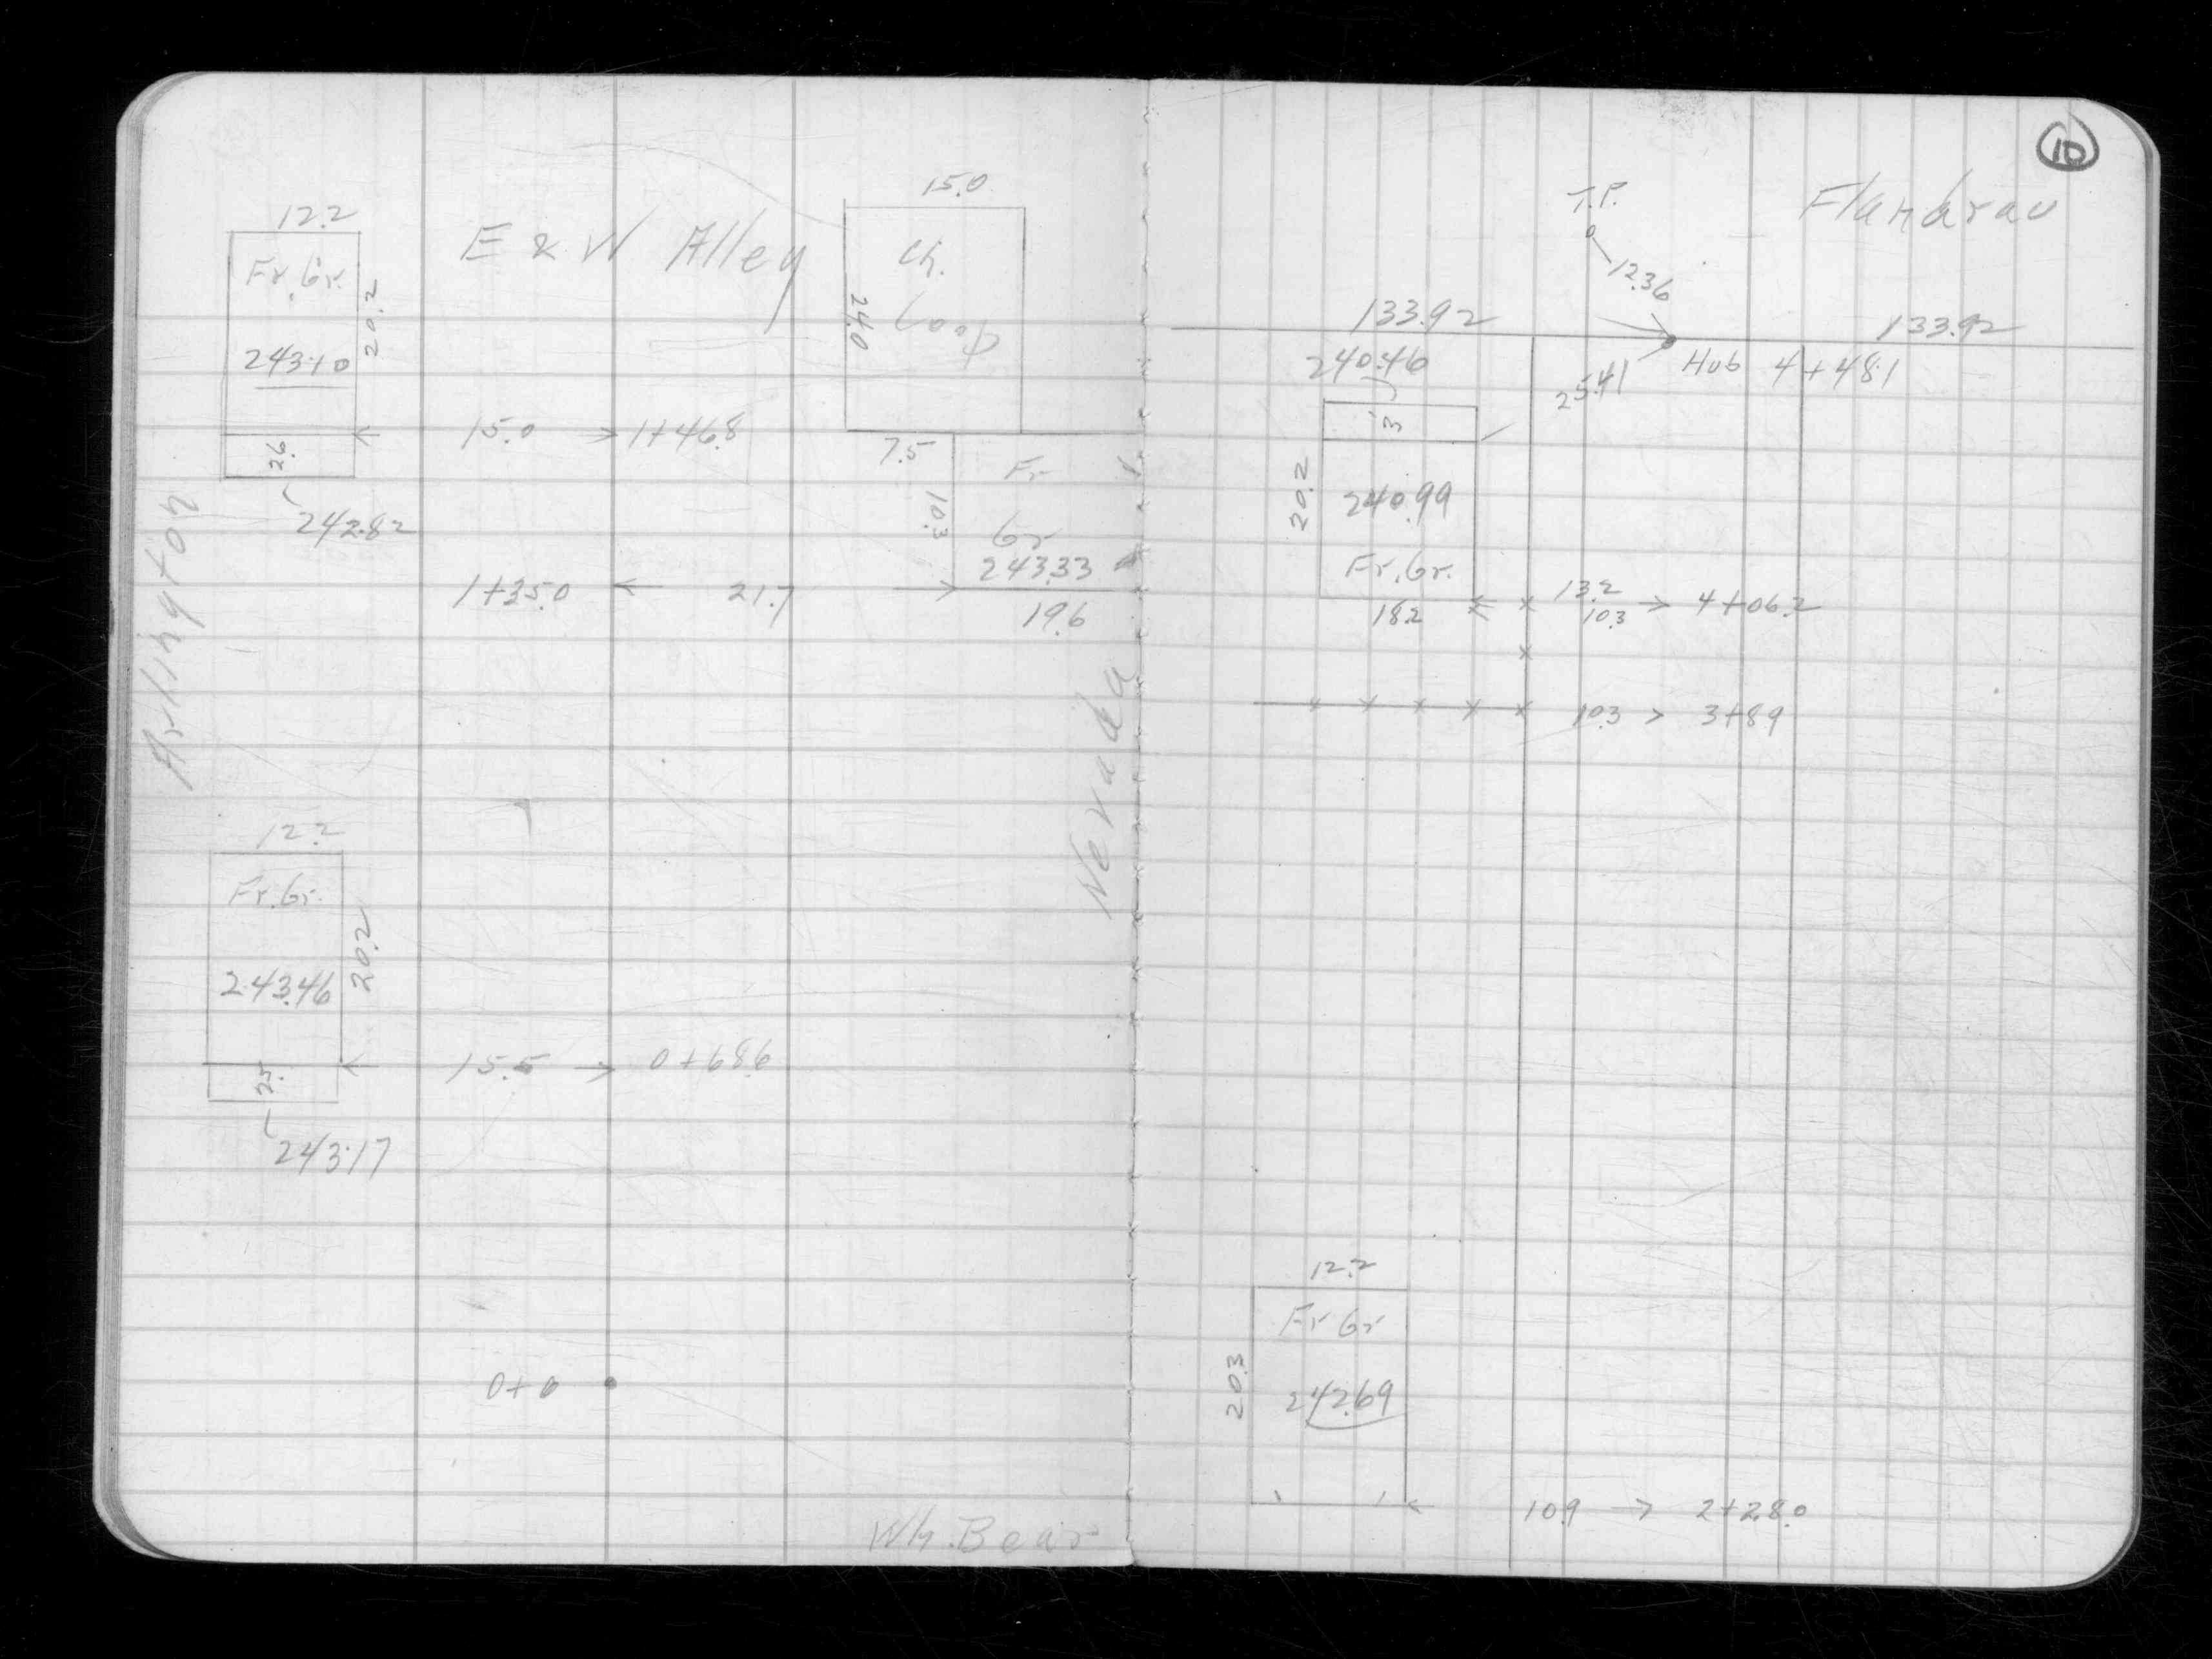 E & W Alley
15.0
12.2
Fr. Gr.
20.2
243.10
Ch.
Coop
24.0
15.0 1+46.8
2.6
242.82
7.5
10.3
Fr
Gr
243.33
1+35.0 21.7
19.6
Arlington
Nevada
12.2
Fr. Gr.
20.2
243.46
15.5 0+68.6
2.5
243.17
0+0
Wh. Bear
10
Flandrau
T.P.
12.36
133.92 133.92
240.46
25.41
Hub 4+48.1
3
20.2
240.99
Fr. Gr.
18.2
13.2
10.3 4+06.2
10.3 3+89
12.2
Fr Gr
20.3
242.69
10.9 2+28.0